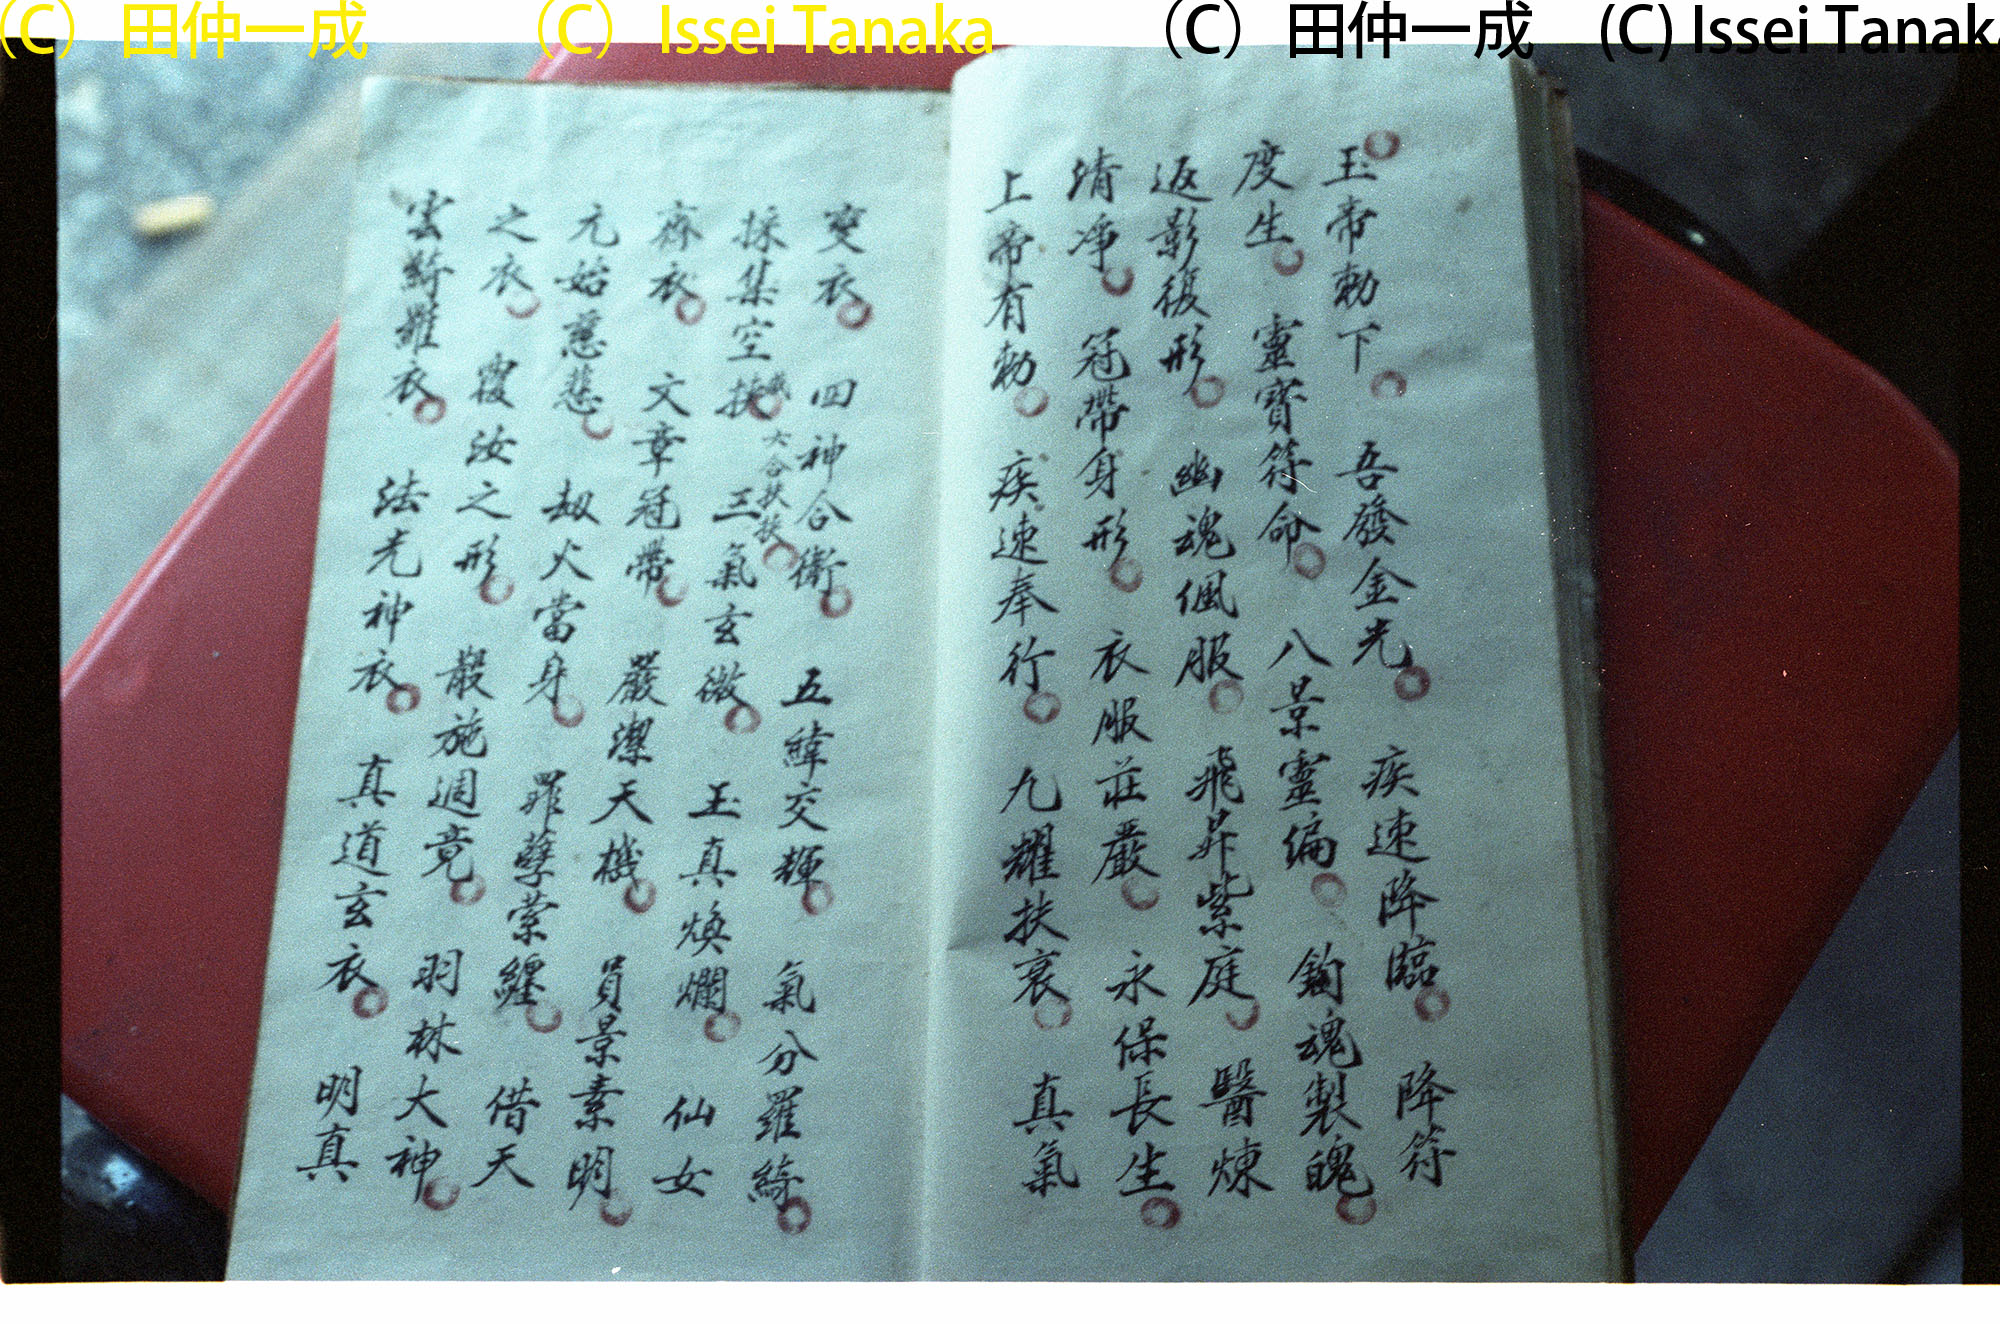 （C）田仲一成 （C） Issei Tanaka （C）田仲一成 (C) Issei Tanaka
玉帝勅下 吾發金光 疾速降臨 降符
度生 靈寳符命 八景靈編 鈎魂製魄
返影復形 幽魂佩服 飛昇紫庭 醫煉
清淨 冠帶身形 衣服莊嚴 永保長生
上帝有勅 疾速奉行 九耀扶衰 真氣
變衣 四神合衛 五緯交輝 氣分羅綺
採集空 三氣玄微 玉真煥爛 仙女
六合扶扶
裔衣 文章冠帶 嚴潔天機 員景素明
元始慈悲 刼火當身 罪孽縈纏 借天
之衣 覆汝之形 散施週竟 羽林大神
雲綺羅衣 法光神衣 真道玄衣 明真